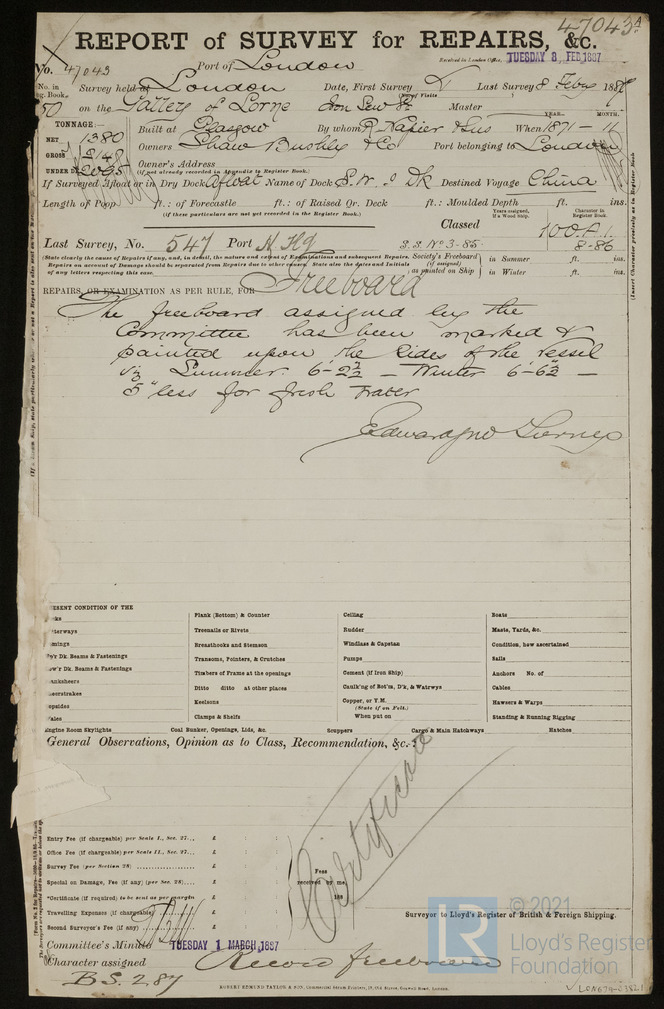 47043A
REPORT of SURVEY for REPAIRS, &c.
No. 47043 Port of London Received in London Office, TUESDAY 8 FEB 1887
No. in Survey held at London Date, First Survey Last Survey 8 Feby 1887
Reg. Book. (No. of Visits)
50 on the Gallery of Lorne Iron Screw Str Master
TONNAGE:— YEAR. MONTH.
NET 1380 Built at Glasgow By whom R Napier & Sons When 1871 - 11
GROSS 2148 Owners Shaw Bushby & Co Port belonging to London
UNDER DK 2095 Owner's Address
(if not already recorded in Appendix to Register Book.)
If Surveyed Afloat or in Dry Dock Afloat Name of Dock S. W. Dk Destined Voyage China
Length of Poop ft.: of Forecastle ft.: of Raised Qr. Deck ft.: Moulded Depth ft. ins.
(if these particulars are not yet recorded in the Register Book.)
Years assigned, if a Wood Ship. Character in Register Book.
Classed 100A1.
Last Survey, No. 547 Port H. Kg S.S. No 3-85 8-86
(State clearly the causes of Repairs if any, and, in detail, the nature and extent of Examinations and subsequent Repairs.
Repairs on account of Damage should be separated from Repairs due to other causes. State also the dates and Initials
of any letters respecting this case.
Society's Freeboard (if assigned) as painted on Ship in Summer ft. ins.
in Winter ft. ins.
REPAIRS, OR EXAMINATION AS PER RULE, FOR Freeboard
The freeboard assigned by the
Committee has been marked &
painted upon the sides of the vessel
viz Summer 6-2½ — Winter 6-6½ —
5" less for fresh water
PRESENT CONDITION OF THE
Plank (Bottom) & Counter
Ceiling
Boats
Treenails or Rivets
Rudder
Masts, Yards, &c.
Breasthooks and Stemson
Windlass & Capstan
Condition, how ascertained
Transoms, Pointers, & Crutches
Pumps
Sails
Timbers of Frame at the openings
Cement (if Iron Ship)
Anchors No. of
Ditto ditto at other places
Caulk'ng of Bot'm, D'k, & Watrwys
Cables
Keelsons
Copper, or Y.M.
(State if on Felt.)
Hawsers & Warps
Clamps & Shelfs
When put on
Standing & Running Rigging
Engine Room Skylights Coal Bunker, Openings, Lids, &c. Scuppers Cargo & Main Hatchways Hatches
General Observations, Opinion as to Class, Recommendation, &c. :
Certificate
Entry Fee (if chargeable) per Scale I., Sec. 27... £ : :
Office Fee (if chargeable) per Scale II., Sec. 27... £ : :
Survey Fee (per Section 28) £ : :
Special on Damage, Fee (if any) (per Sec. 28) £ : :
*Certificate (if required) to be sent as per margin £
Travelling Expenses (if chargeable) £ : :
Second Surveyor's Fee (if any) £ : :
Fees received by me, 188
Surveyor to Lloyd's Register of British & Foreign Shipping.
Committee's Minute TUESDAY 1 MARCH 1887
Character assigned Record freeboard
B.S. 2.87
ROBERT EDMUND TAYLOR & SON
© 2021
LR
Lloyd's Register
Foundation